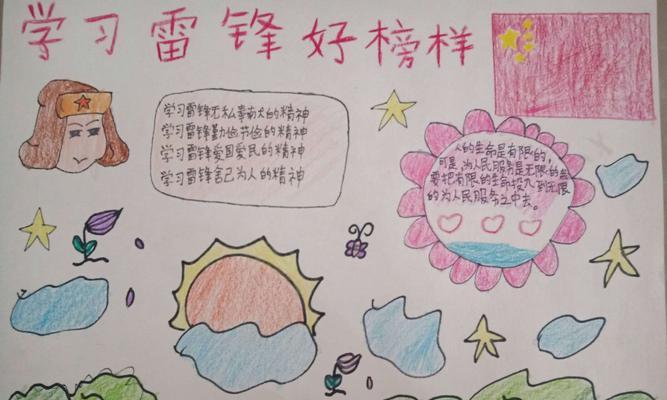 学习雷锋好榜样
学习雷锋无私奉献的精神
学习雷锋勤俭节俭的精神
学习雷锋爱国爱民的精神
学习雷锋舍己为人的精神
人的生命是有限的，
可是，为人民服务是无限的，我
要把有限的生命投入到无限
的为人民服务之中去。